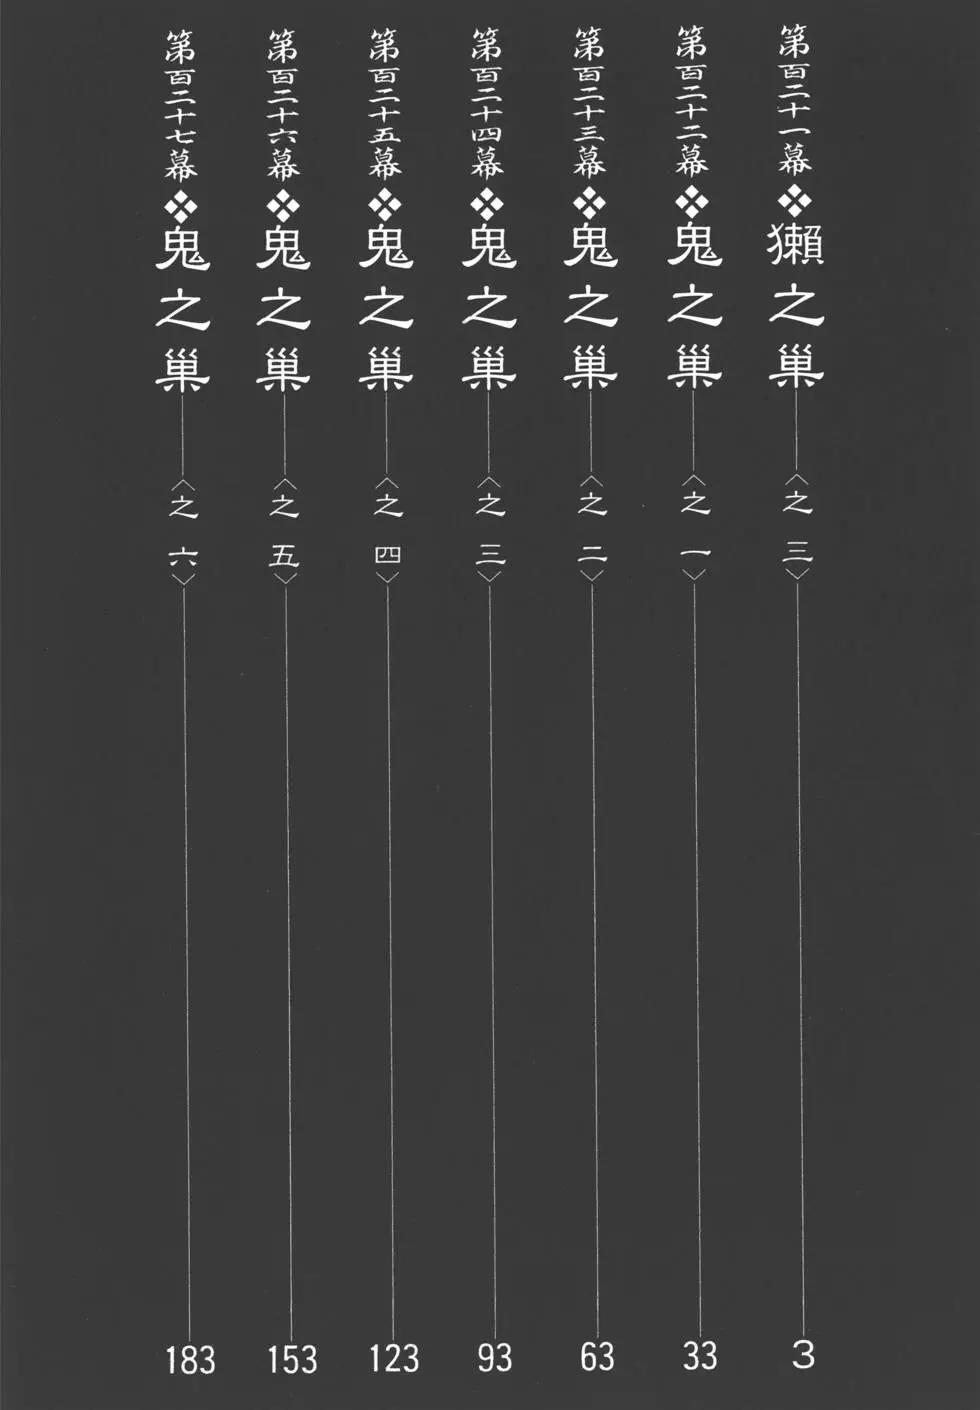 第百二十一幕❖獺之巣〈之三〉3
第百二十二幕❖鬼之巣〈之一〉33
第百二十三幕❖鬼之巣〈之二〉63
第百二十四幕❖鬼之巣〈之三〉93
第百二十五幕❖鬼之巣〈之四〉123
第百二十六幕❖鬼之巣〈之五〉153
第百二十七幕❖鬼之巣〈之六〉183